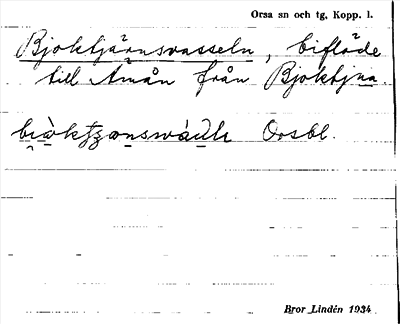 Orsa sn och tg, Kopp. l.
Bjoktjärnsvasseln, biflöde
till Ämån från Bjoktjna.
Orsbl.
Bror Lindén 1934